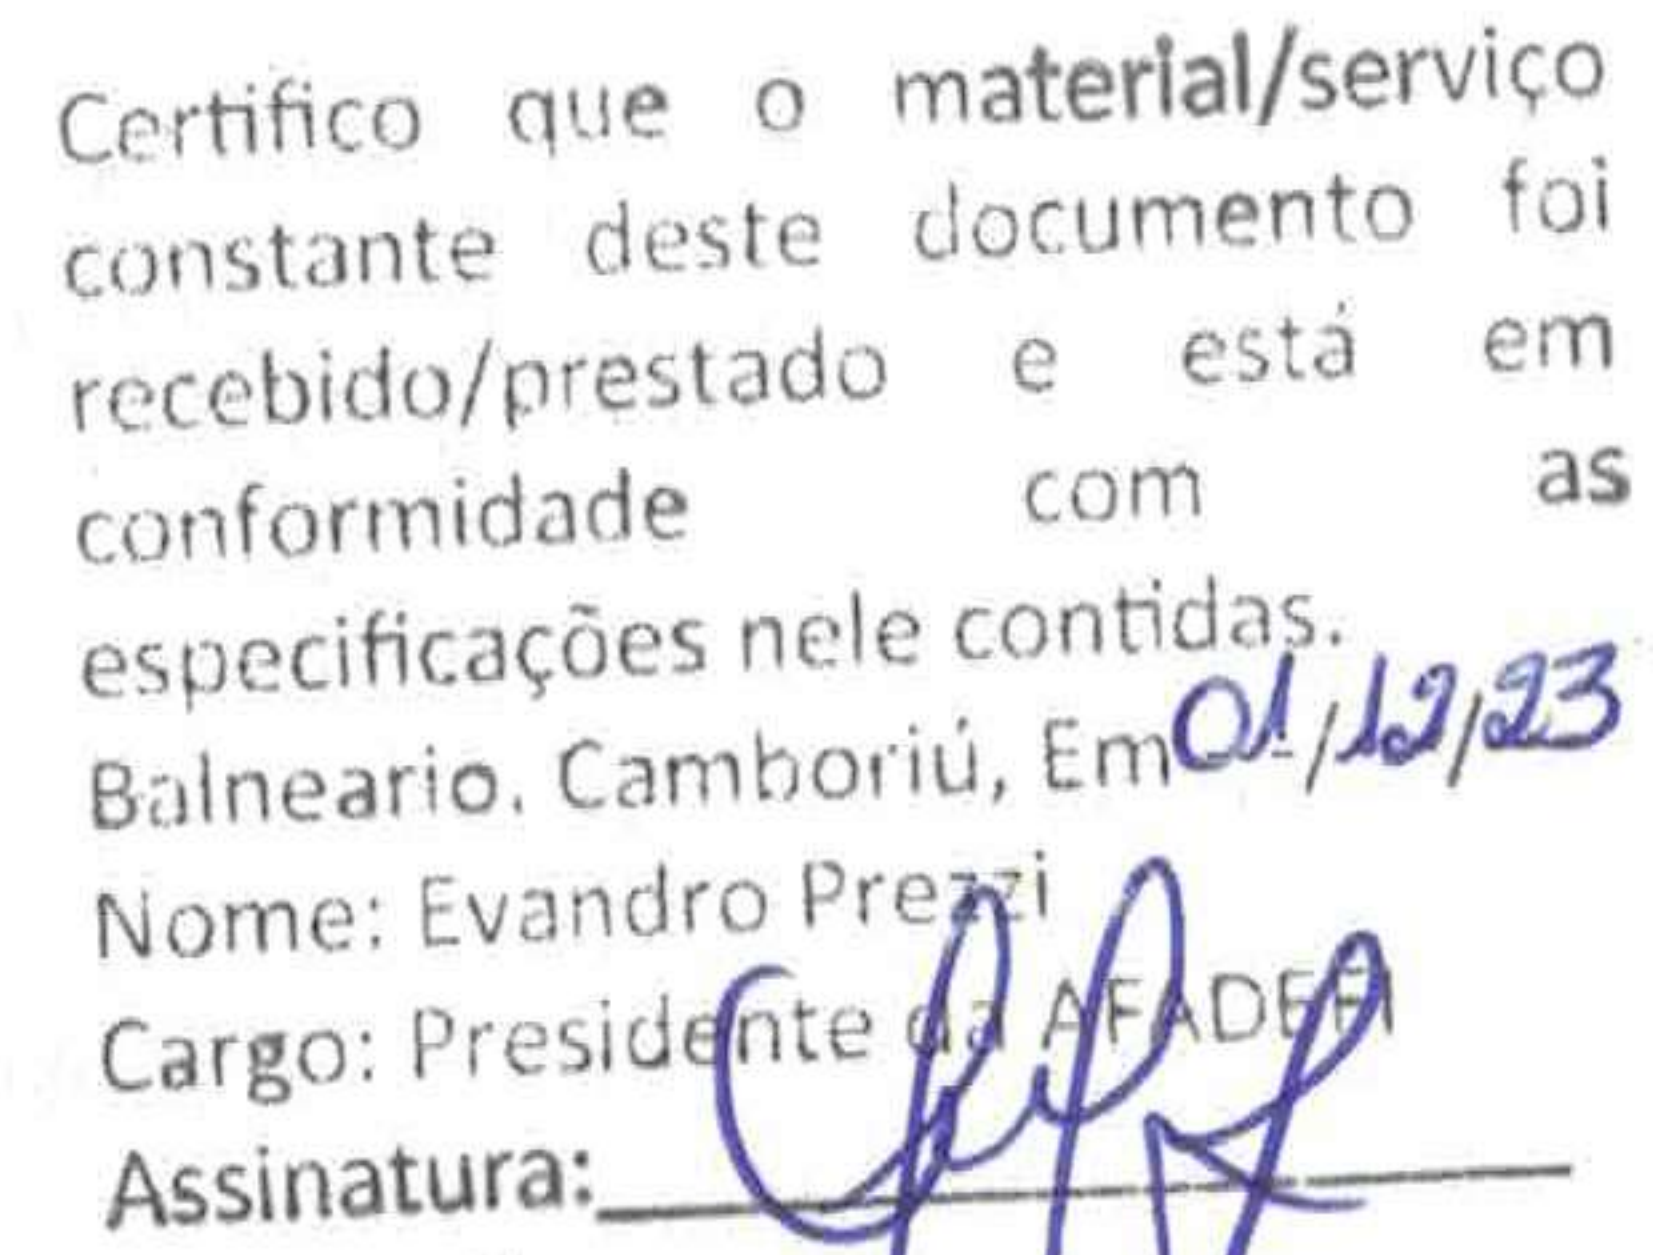 Certifico que o material/serviço
constante deste documento foi
recebido/prestado e está em
conformidade com as
especificações nele contidas.
Balneario. Camboriú, Em 01/12/23
Nome: Evandro Prezzi
Cargo: Presidente da AFADEFI
Assinatura: